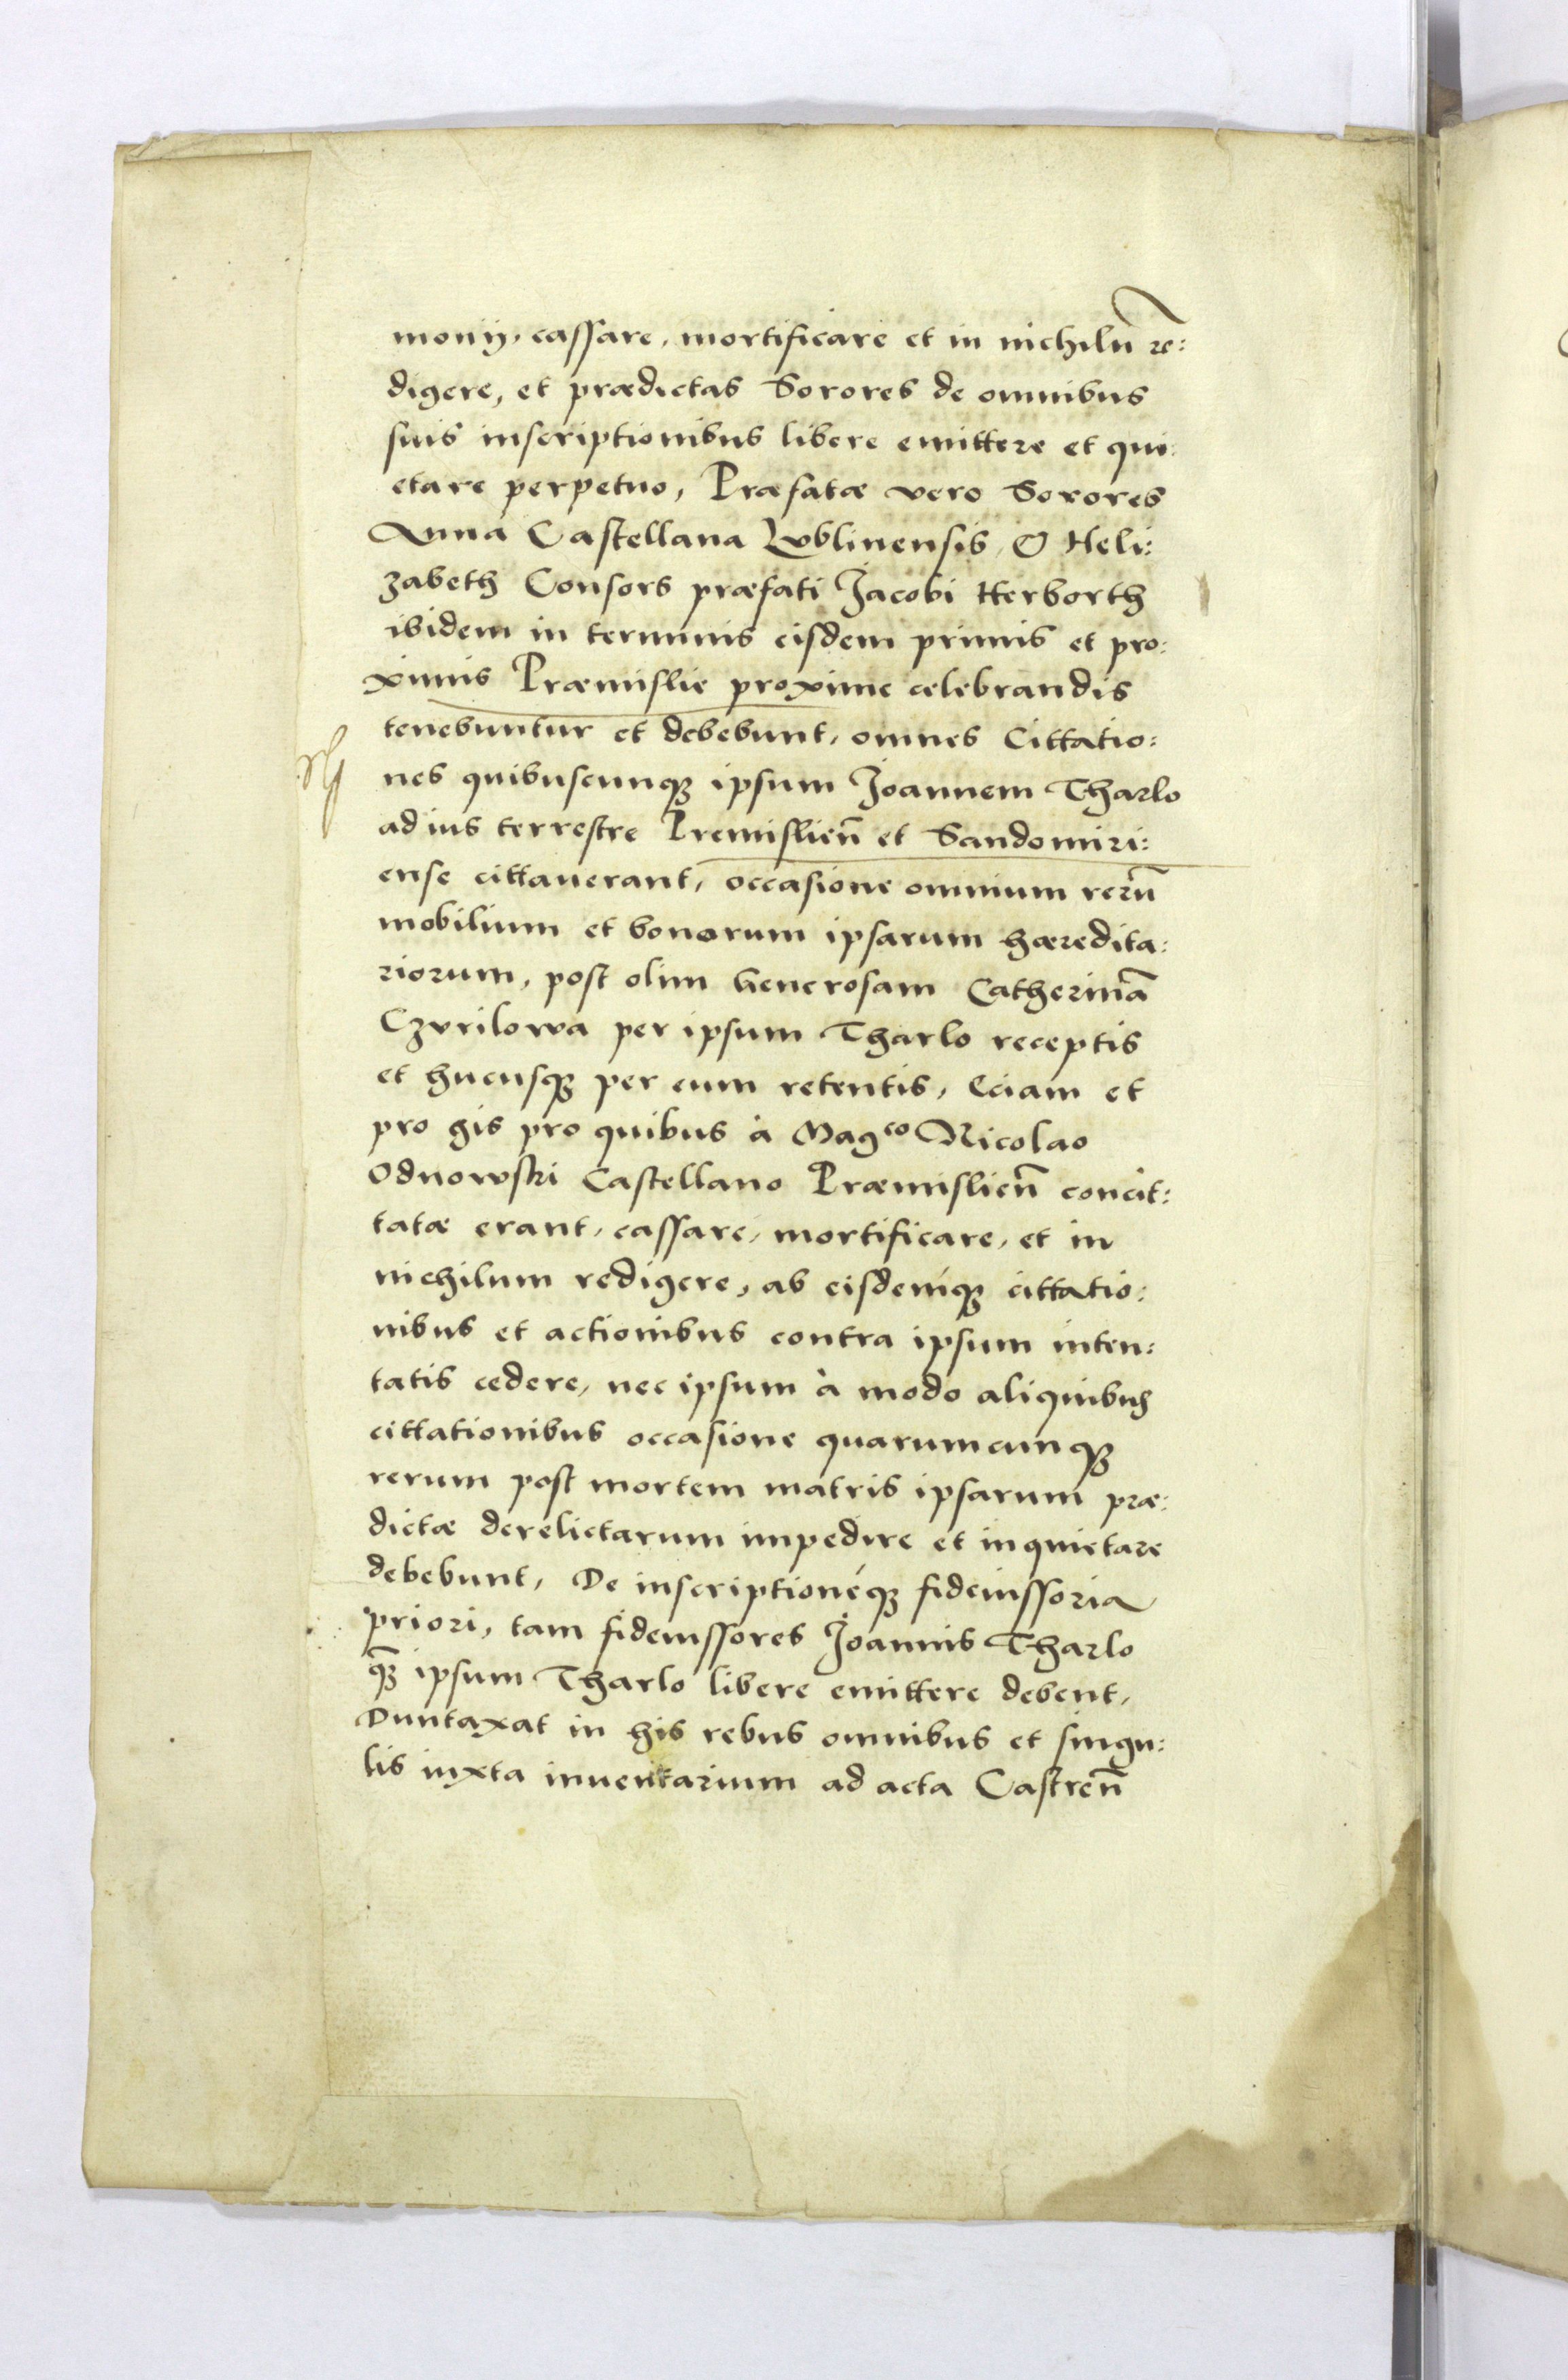 monij, cassare, mortificare et in nichilũ re:
digere, et prædictas Sorores de omnibus
suis inscriptionibus libere emittere et qui:
etare perpetuo, Præfatæ vero Sorores
Anna Castellana Lublinensis, & Heli:
zabeth Consors præfati Jacobi Herborth
ibidem in terminis eisdem primis et pro:
ximis Præmislie proxime celebrandis
tenebuntur et debebunt, omnes Cittatio:
nes quibuscunqꝫ ipsum Joannem Tharlo
ad ius terrestre Premislieñ et Sandomiri:
ense cittauerant, occasione omnium rerũ
mobilium et bonorum ipsarum hæredita:
riorum, post olim Generosam Catherinã
Czurilowa per ipsum Tharlo receptis
et hucusqꝫ per eum retentis, Eciam et
pro his pro quibus à Magco Nicolao
Odnowski Castellano Præmislieñ concit:
tatæ erant, cassare, mortificare, et in
nichilum redigere, ab eisdemqꝫ cittatio:
nibus et actionibus contra ipsum inten:
tatis cedere, nec ipsum à modo aliquibus
cittationibus occasione quarumcunqꝫ
rerum post mortem matris ipsarum præ:
dictæ derelictarum impedire et inquietare
debebunt, De inscriptionéqꝫ fideiussoria
priori, tam fideiussores Joannis Tharlo
qꝫ̃ ipsum Tharlo libere emittere debent,
Duntaxat in his rebus omnibus et singu:
lis iuxta inuentarium ad acta Castreñ